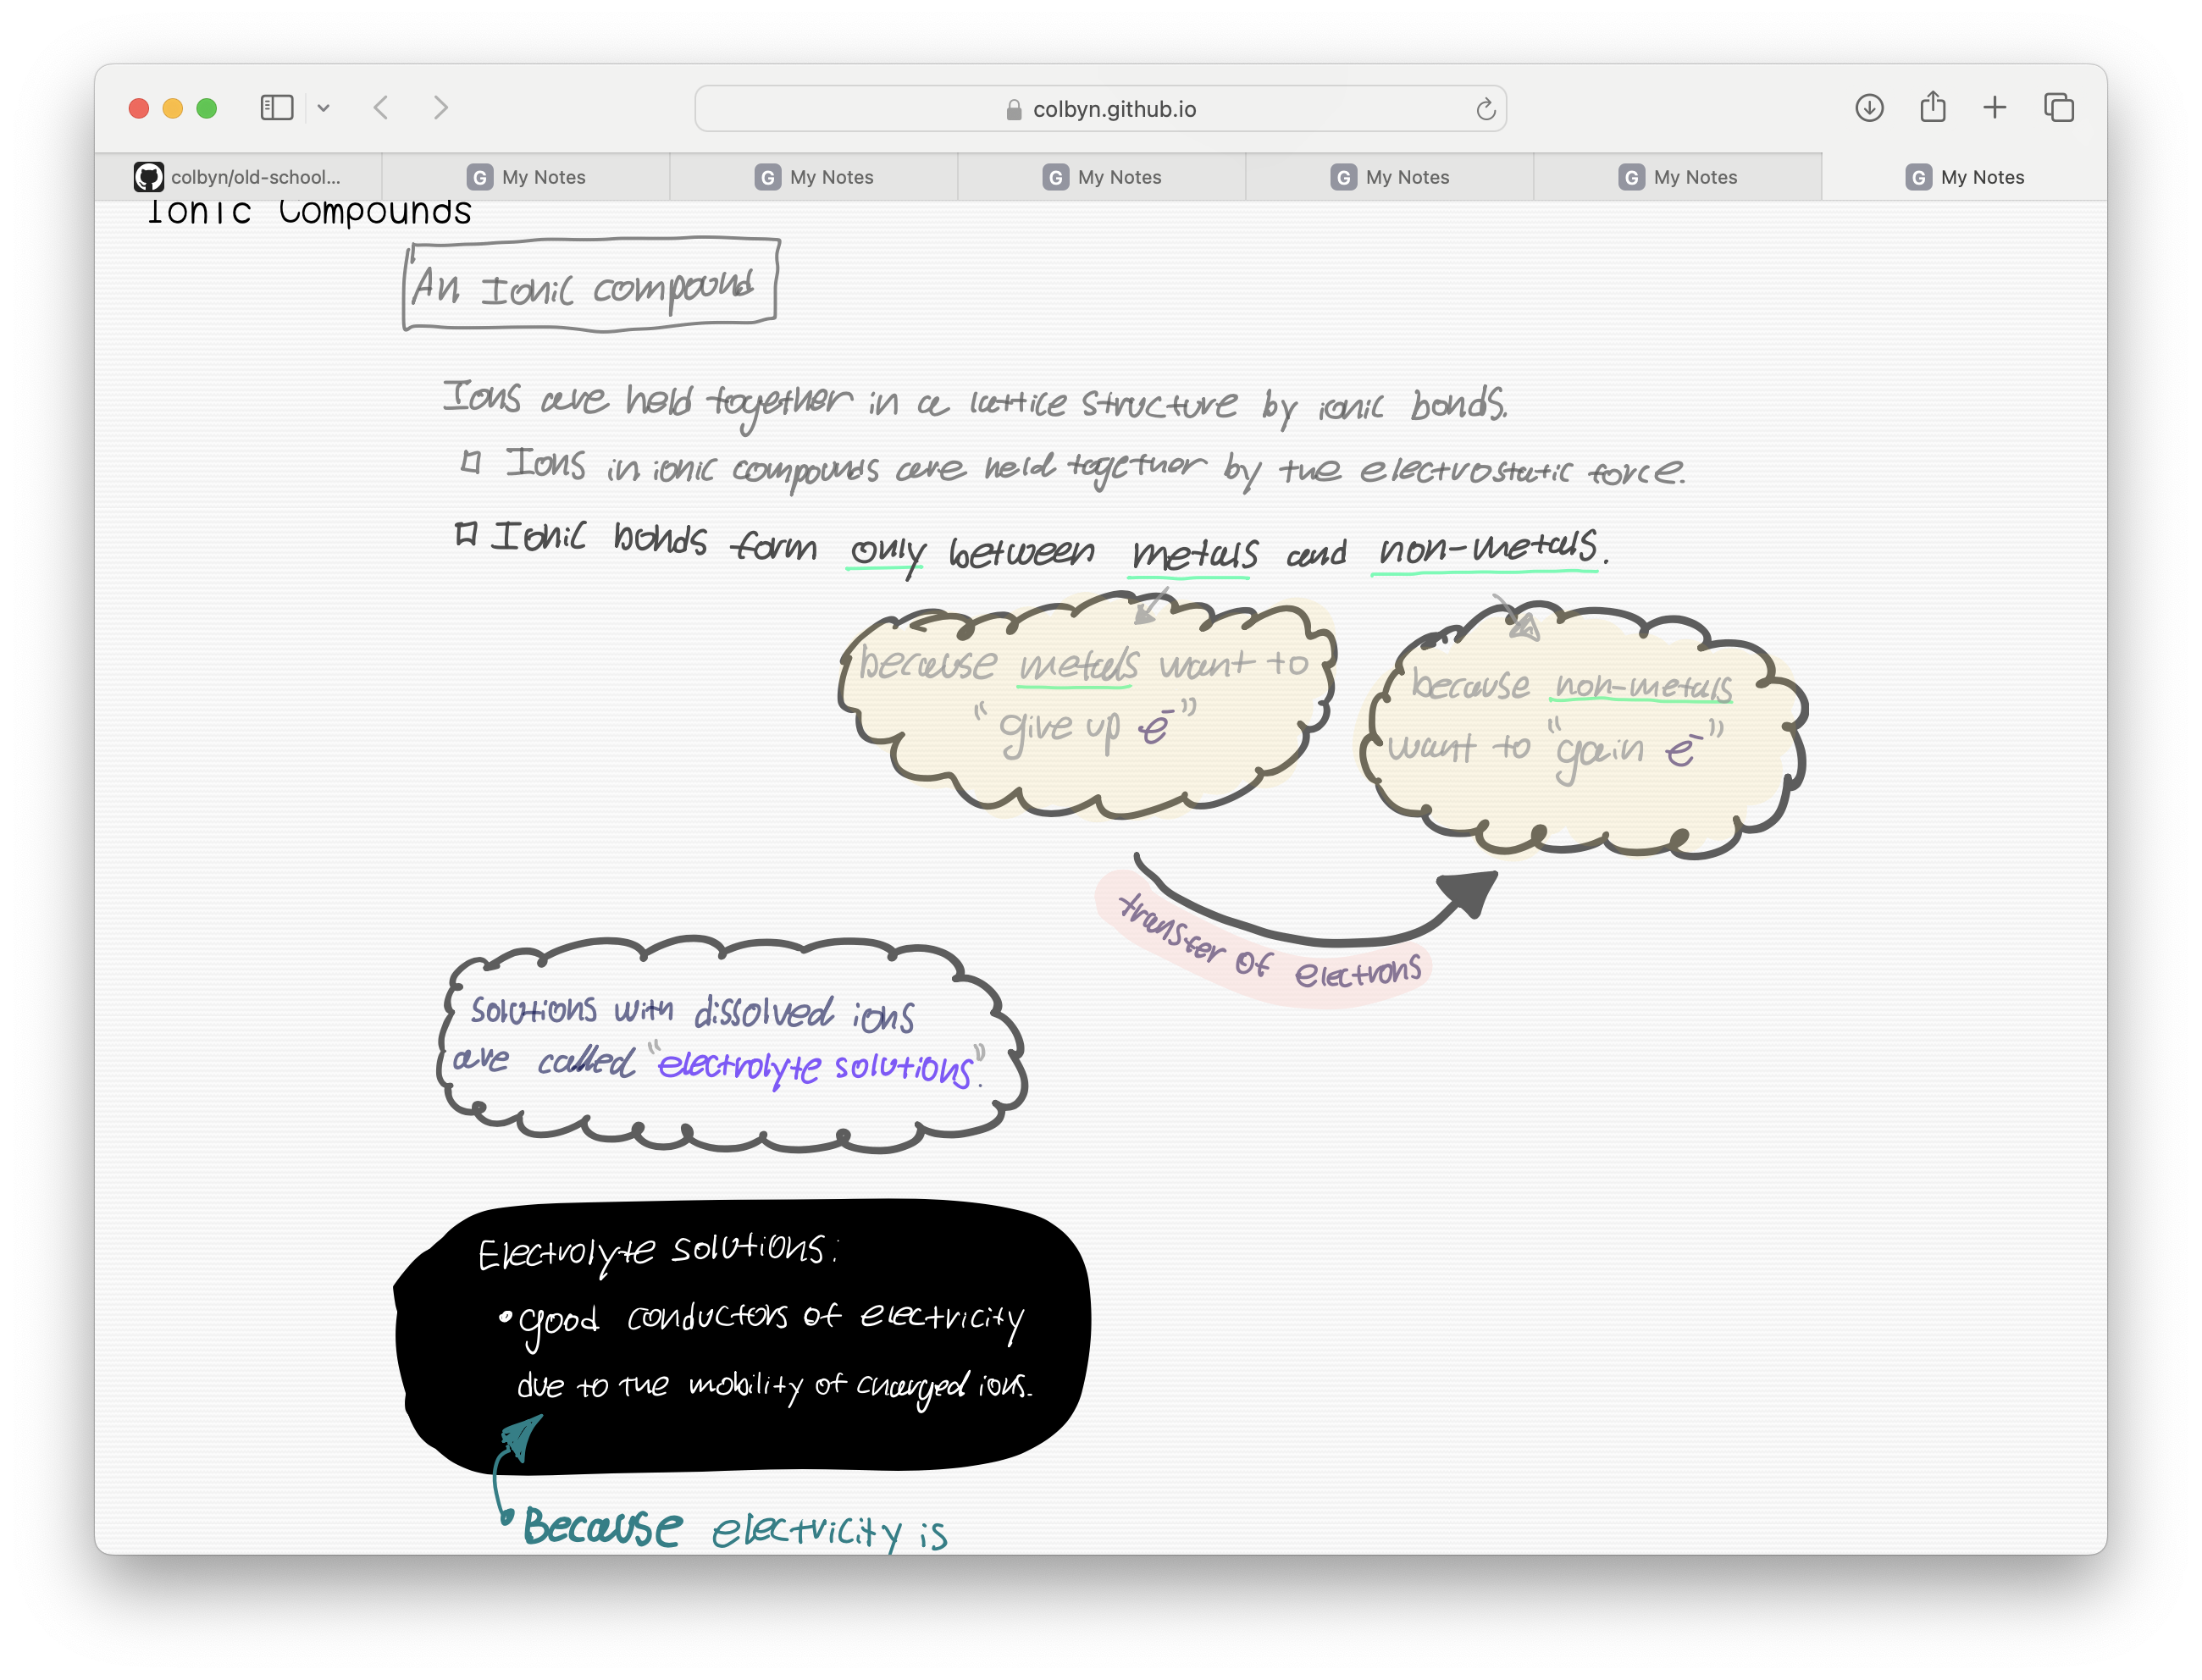 colbyn.github.io
colbyn/old-school...
G My Notes
G My Notes
G My Notes
G My Notes
G My Notes
G My Notes
Ionic Compounds
An Ionic compound
Ions are held together in a lattice structure by ionic bonds.
Ions in ionic compounds are held together by the electrostatic force.
Ionic bonds form only between metals and non-metals.
because metals want to
"give up e⁻"
because non-metals
want to "gain e⁻"
transfer of electrons
solutions with dissolved ions
are called "electrolyte solutions".
Electrolyte solutions:
• good conductors of electricity
due to the mobility of charged ions.
Because electricity is